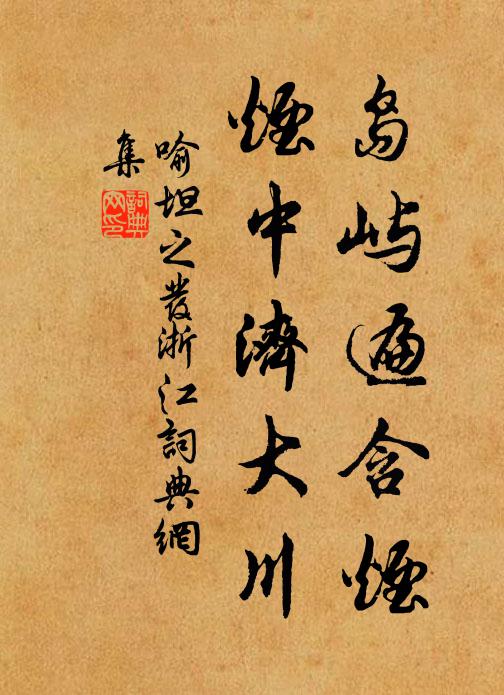 島嶼遍含煙
煙中濟大川
喻坦之發浙江詞典網
集
詞典
网印